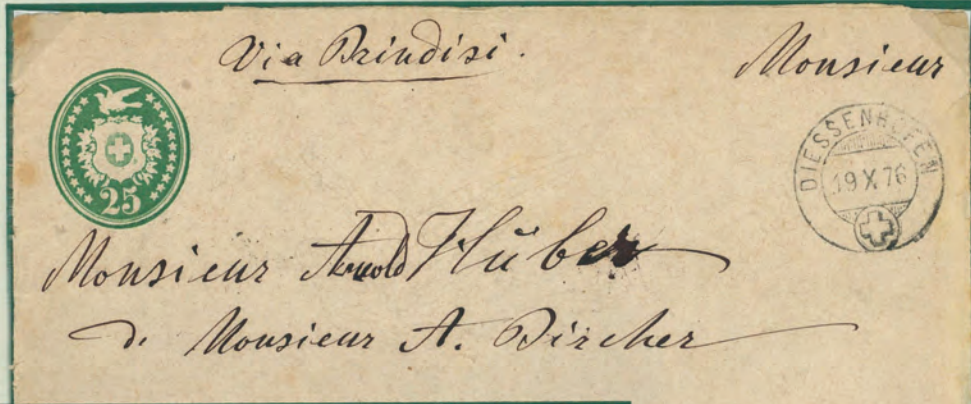 Via Brindisi.
Monsieur
25
DIESSENHOFEN
19 X 76
Monsieur Arnold Huber
d. Monsieur A. Bircher